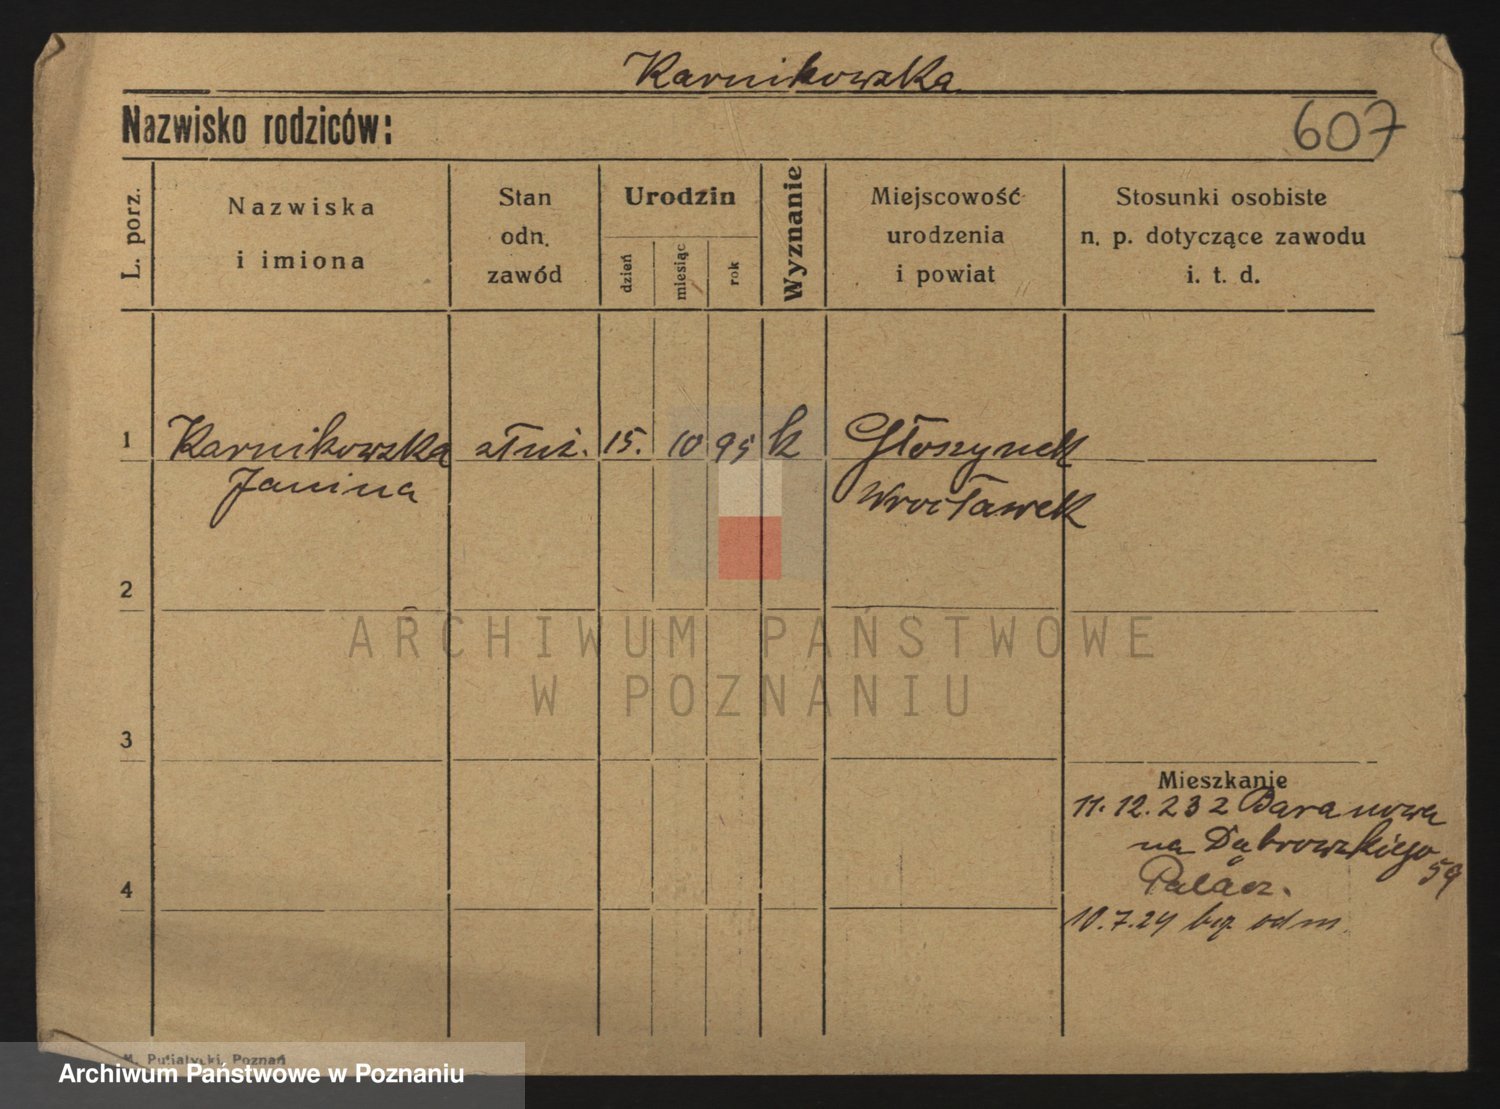 Karnikowska
Nazwisko rodziców:
607
L. porz.
Nazwiska
i imiona
Stan
odn.
zawód
Urodzin
dzień
miesiąc
rok
Wyznanie
Miejscowość
urodzenia
i powiat
Stosunki osobiste
n. p. dotyczące zawodu
i. t. d.
1
Karnikowska
Janina
służ.
15.
10
95
k
Głoszynek
Wrocławek
2
ARCHIWUM PAŃSTWOWE
W POZNANIU
3
Mieszkanie
11. 12. 23 2 Baranowa
na Dąbrowskiego 59
Palacz.
4
10. 7. 24 odm
M. Putiatycki, Poznań
Archiwum Państwowe w Poznaniu